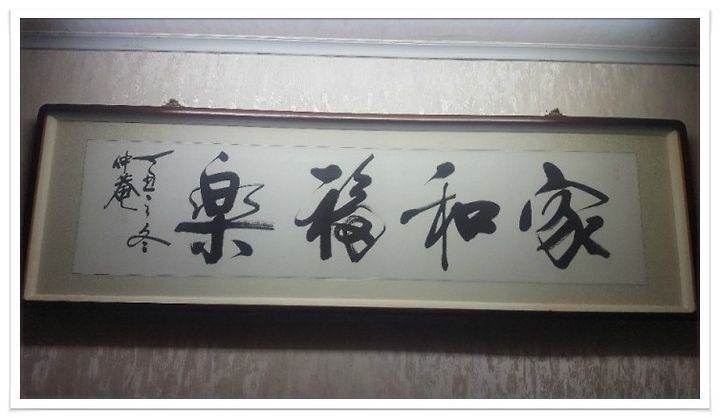 家和福樂
丁丑之冬
仲菴